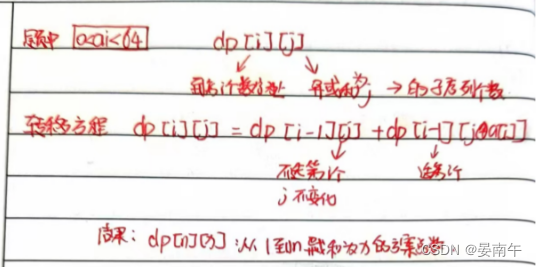 题中 0≤ai<64 dp[i][j]
到第i个数为止 异或和为j → 的子序列个数
转移方程 dp[i][j] = dp[i-1][j] + dp[i-1][j⊕a[i]]
不选第i个 选第i个
j不变化
结果: dp[n][j]:从1到n,异或和为j的方案总数
CSDN @晏南午